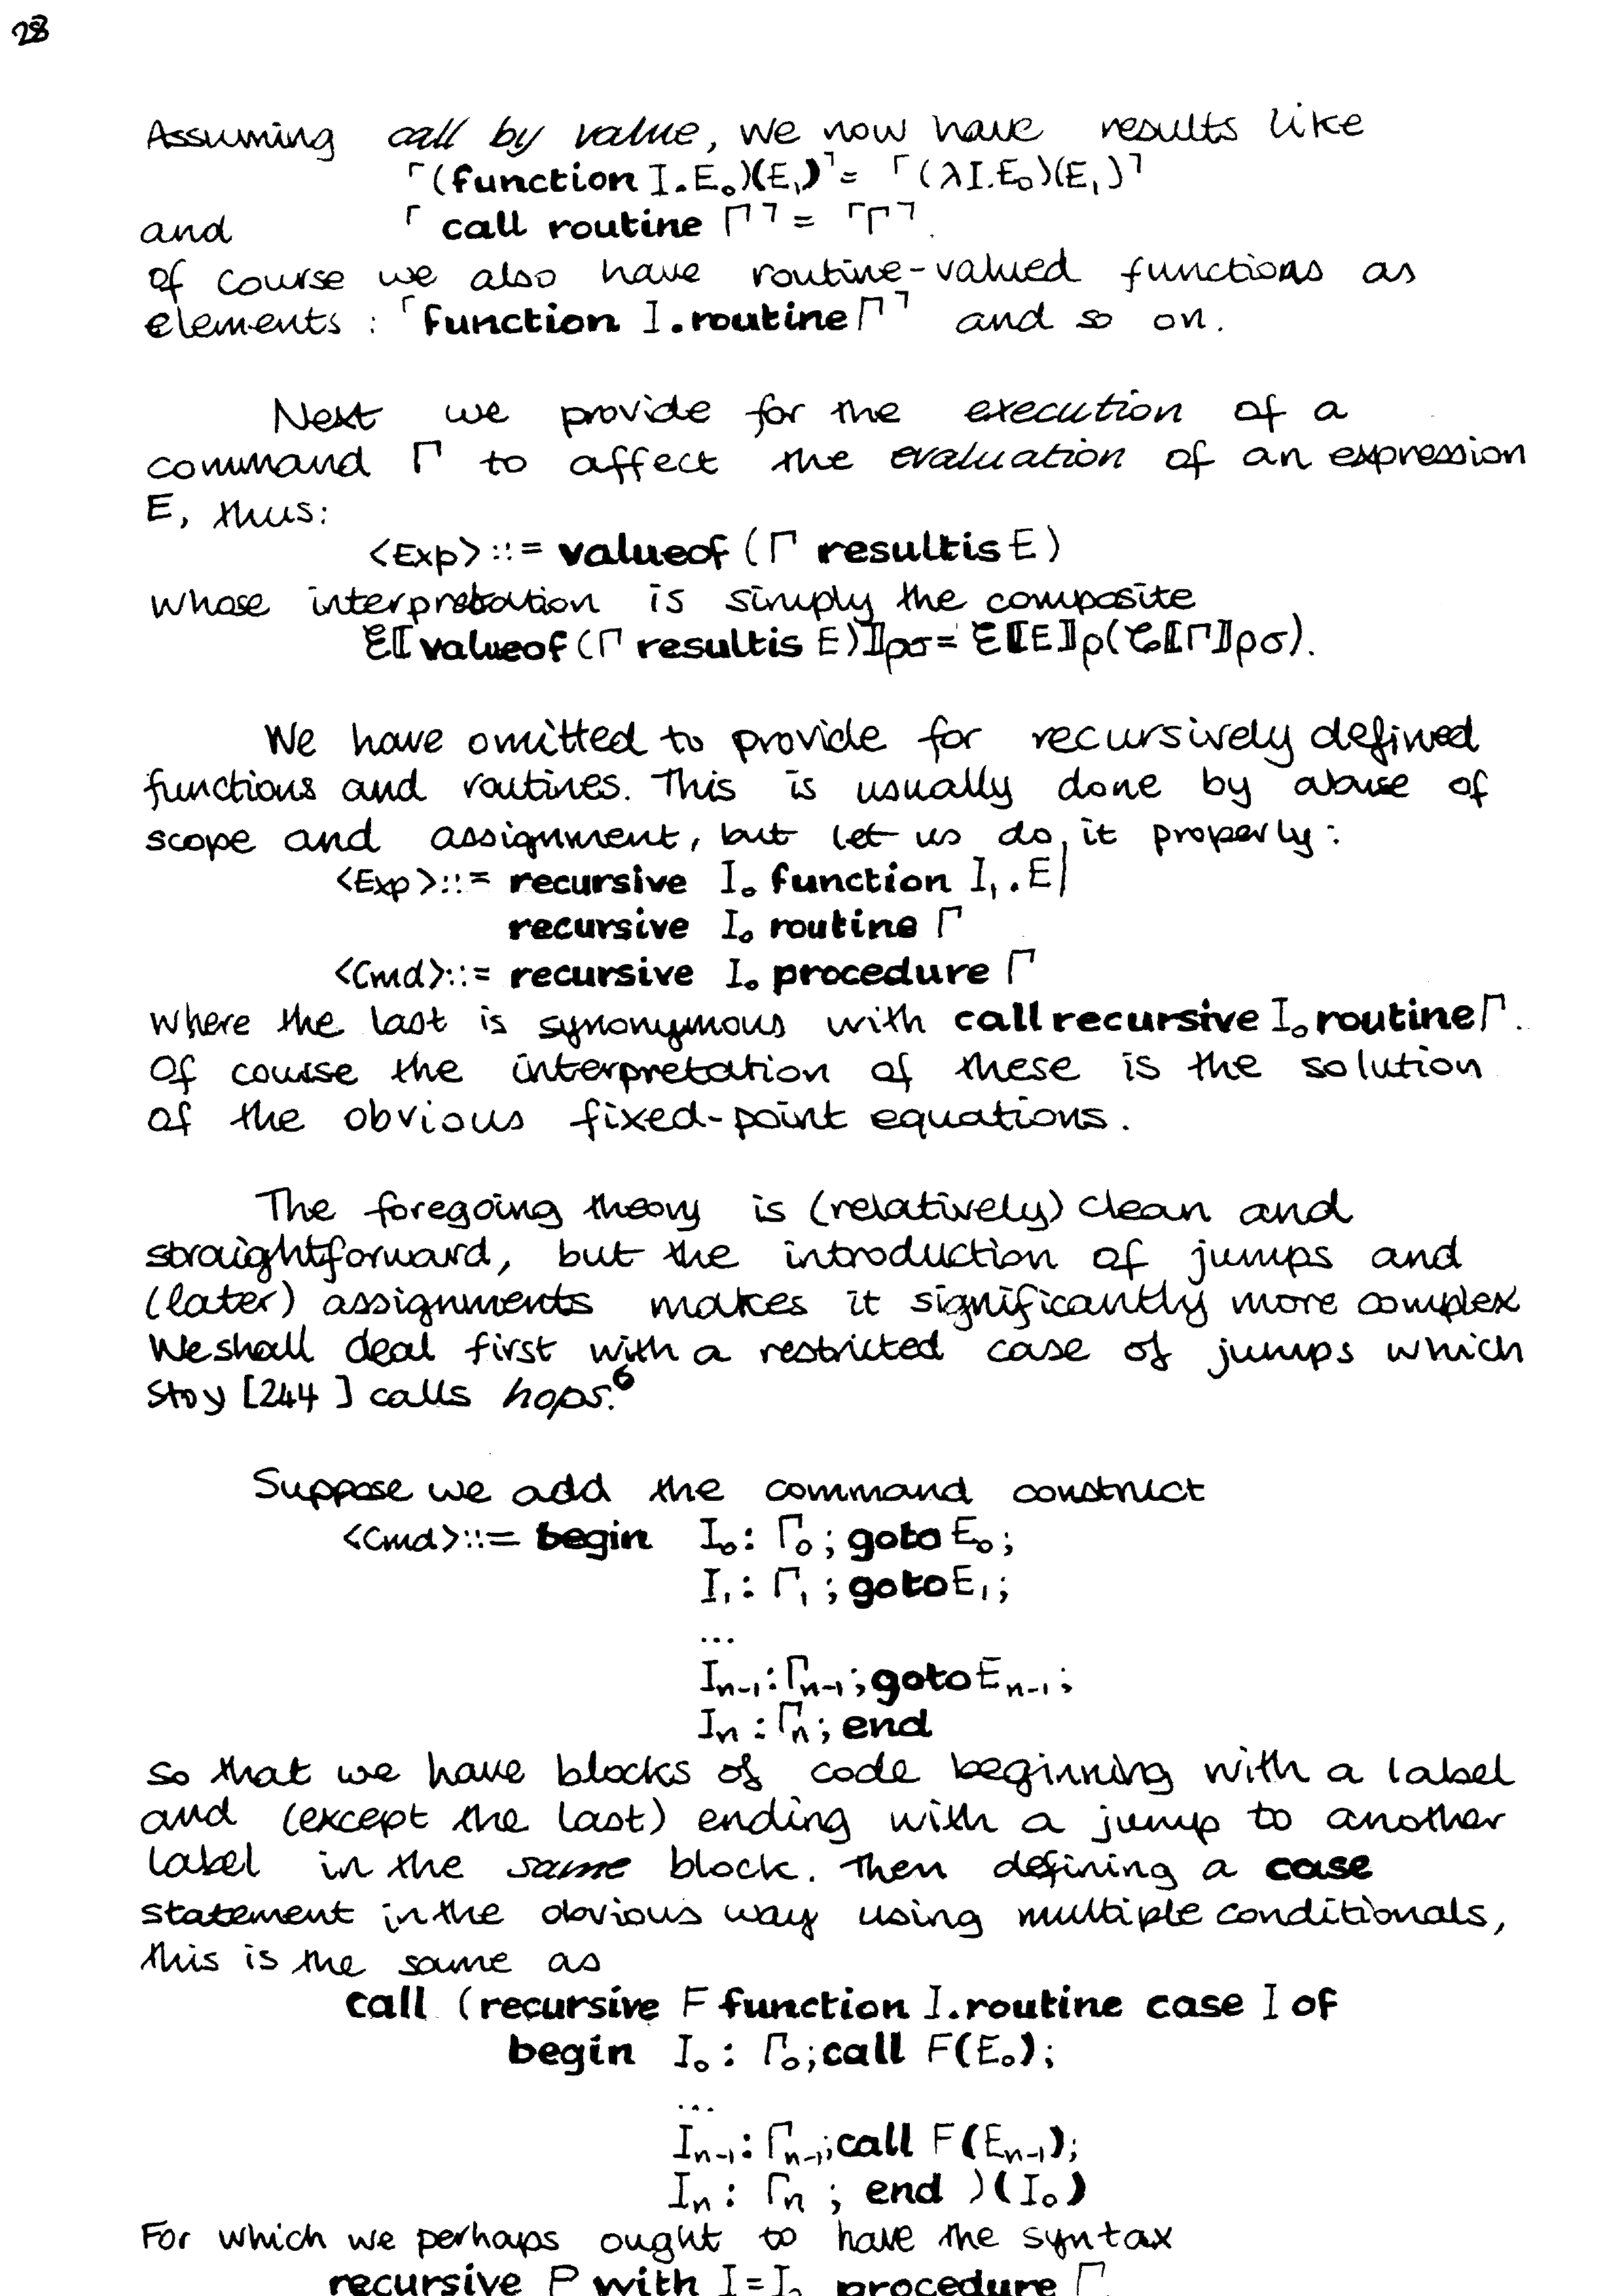 28
Assuming call by value, we now have results like
⌜(function I.E₀)(E₁)⌝ = ⌜(λI.E₀)(E₁)⌝
and ⌜call routine Γ⌝ = ⌜Γ⌝.
of course we also have routine-valued functions as
elements : ⌜function I.routine Γ⌝ and so on.
Next we provide for the execution of a
command Γ to affect the evaluation of an expression
E, thus:
<Exp>::= valueof (Γ resultis E)
whose interpretation is simply the composite
ℰ⟦valueof (Γ resultis E)⟧ρσ = ℰ⟦E⟧ρ(𝒞⟦Γ⟧ρσ).
We have omitted to provide for recursively defined
functions and routines. This is usually done by abuse of
scope and assignment, but let us do it properly:
<Exp>::= recursive I₀ function I₁.E|
recursive I₀ routine Γ
<Cmd>::= recursive I₀ procedure Γ
where the last is synonymous with call recursive I₀ routine Γ.
Of course the interpretation of these is the solution
of the obvious fixed-point equations.
The foregoing theory is (relatively) clean and
straightforward, but the introduction of jumps and
(later) assignments makes it significantly more complex
We shall deal first with a restricted case of jumps which
Stoy [244] calls hops.⁶
Suppose we add the command construct
<Cmd>::= begin I₀: Γ₀; goto E₀;
I₁: Γ₁; goto E₁;
...
Iₙ₋₁: Γₙ₋₁; goto Eₙ₋₁;
Iₙ: Γₙ; end
so that we have blocks of code beginning with a label
and (except the last) ending with a jump to another
label in the same block. Then defining a case
statement in the obvious way using multiple conditionals,
this is the same as
call (recursive F function I.routine case I of
begin I₀: Γ₀; call F(E₀);
...
Iₙ₋₁: Γₙ₋₁; call F(Eₙ₋₁);
Iₙ: Γₙ; end )(I₀)
For which we perhaps ought to have the syntax
recursive P with I=I₀ procedure Γ